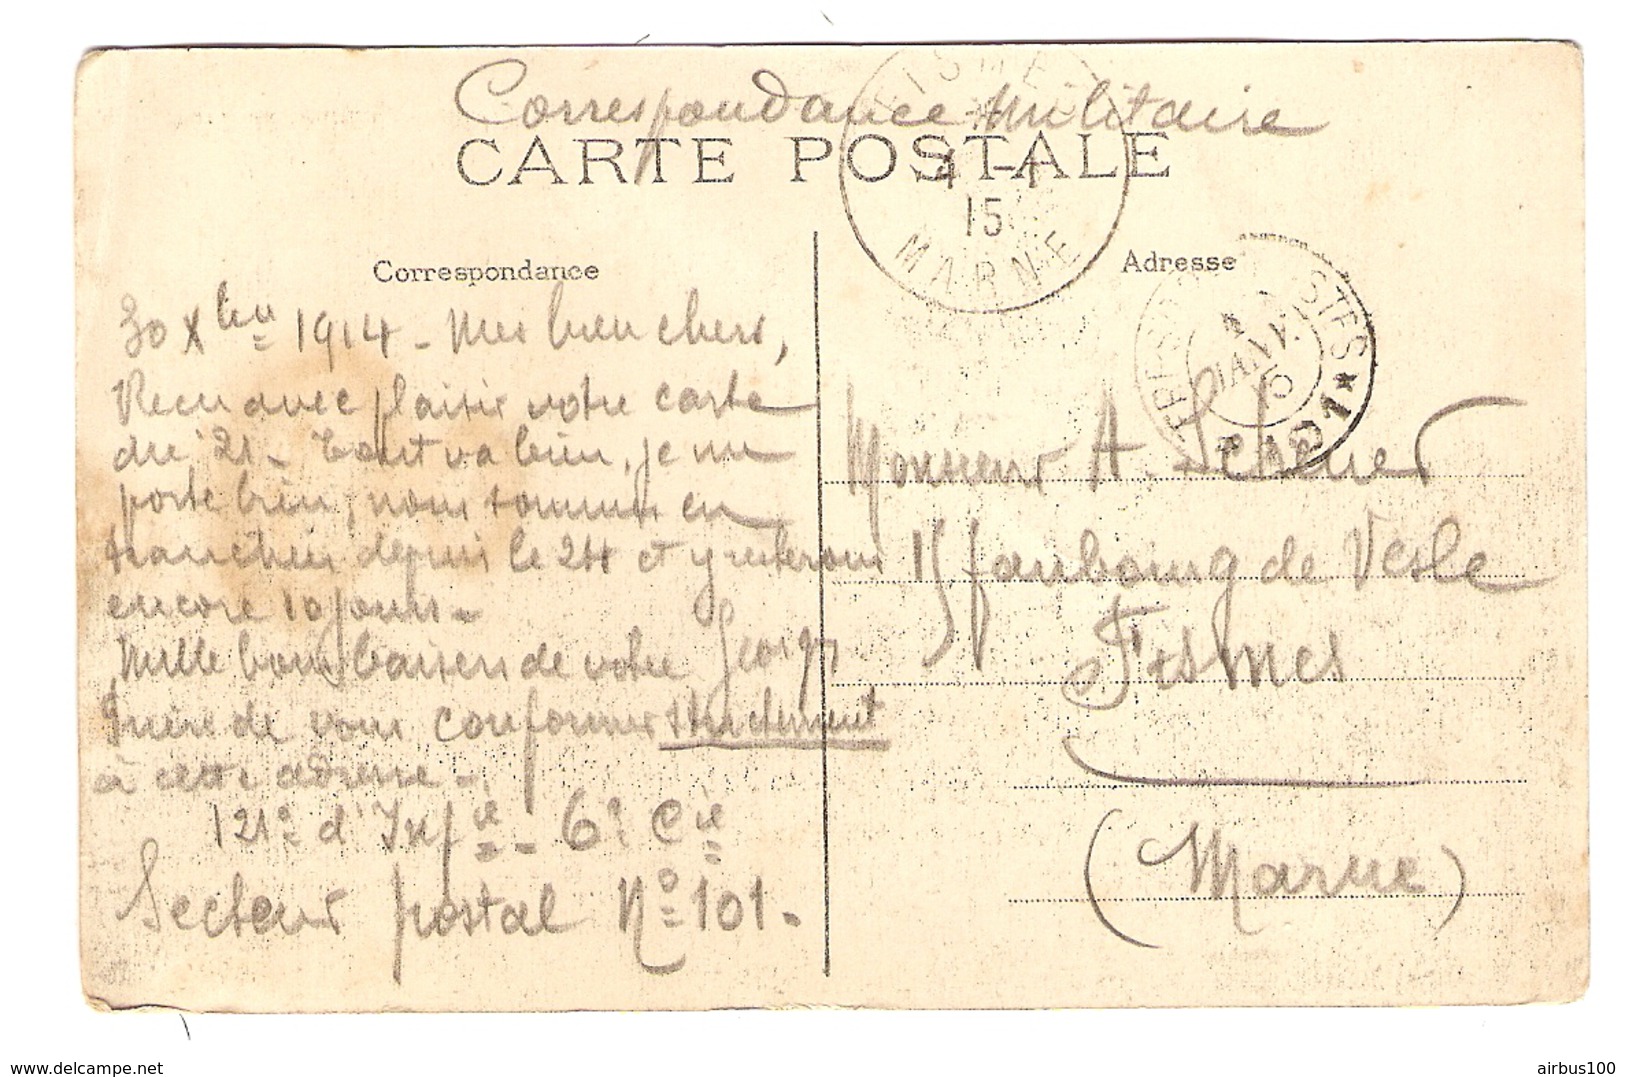 Correspondance Militaire
CARTE POSTALE
FISMES
4 -1
15
MARNE
Correspondance
Adresse
TRESOR ET POSTES
4
JANV.
15
* 101 *
30 Xbre 1914 - Mes bien chers,
Recu avec plaisir votre carte
du 21 - Tout va bien, je me
porte bien, nous sommes en
tranchées depuis le 24 et y resterons
encore 10 jours -
Mille bons baisers de votre Georges
Prière de vous conformer strictement
à cette adresse -
121e d'Infie - 6e Cie
Secteur postal No 101 -
Monsieur A. Scherer
15 faubourg de Vesle
Fismes
(Marne)
delcampe.net
airbus100